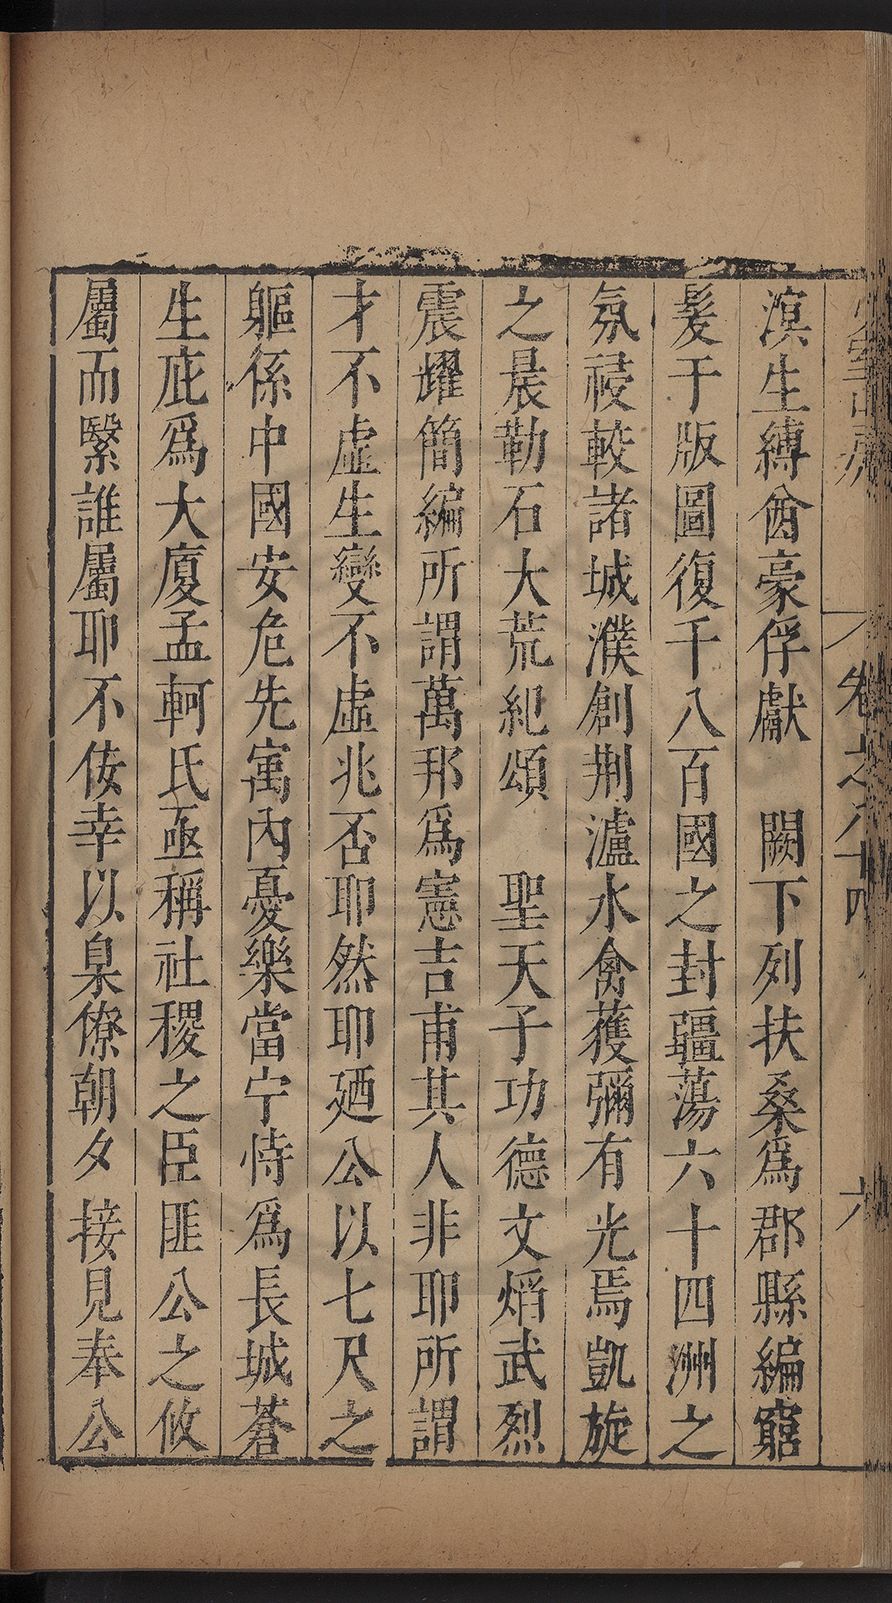 溟生縛酋豪俘獻　闕下列扶桑爲郡縣編窮
髮于版圖復千八百國之封疆蕩六十四洲之
氛祲較諸城濮創荆瀘水禽獲彌有光焉凱旋
之晨勒石大荒紀頌　聖天子功德文焰武烈
震耀簡編所謂萬邦爲憲吉甫其人非耶所謂
才不虛生變不虛兆否耶然耶廼公以七尺之
軀係中國安危先寓內憂樂當宁恃爲長城蒼
生庇爲大廈孟軻氏亟稱社稷之臣匪公之攸
屬而繄誰屬耶不佞幸以臬僚朝夕接見奉公
卷之八十四
六